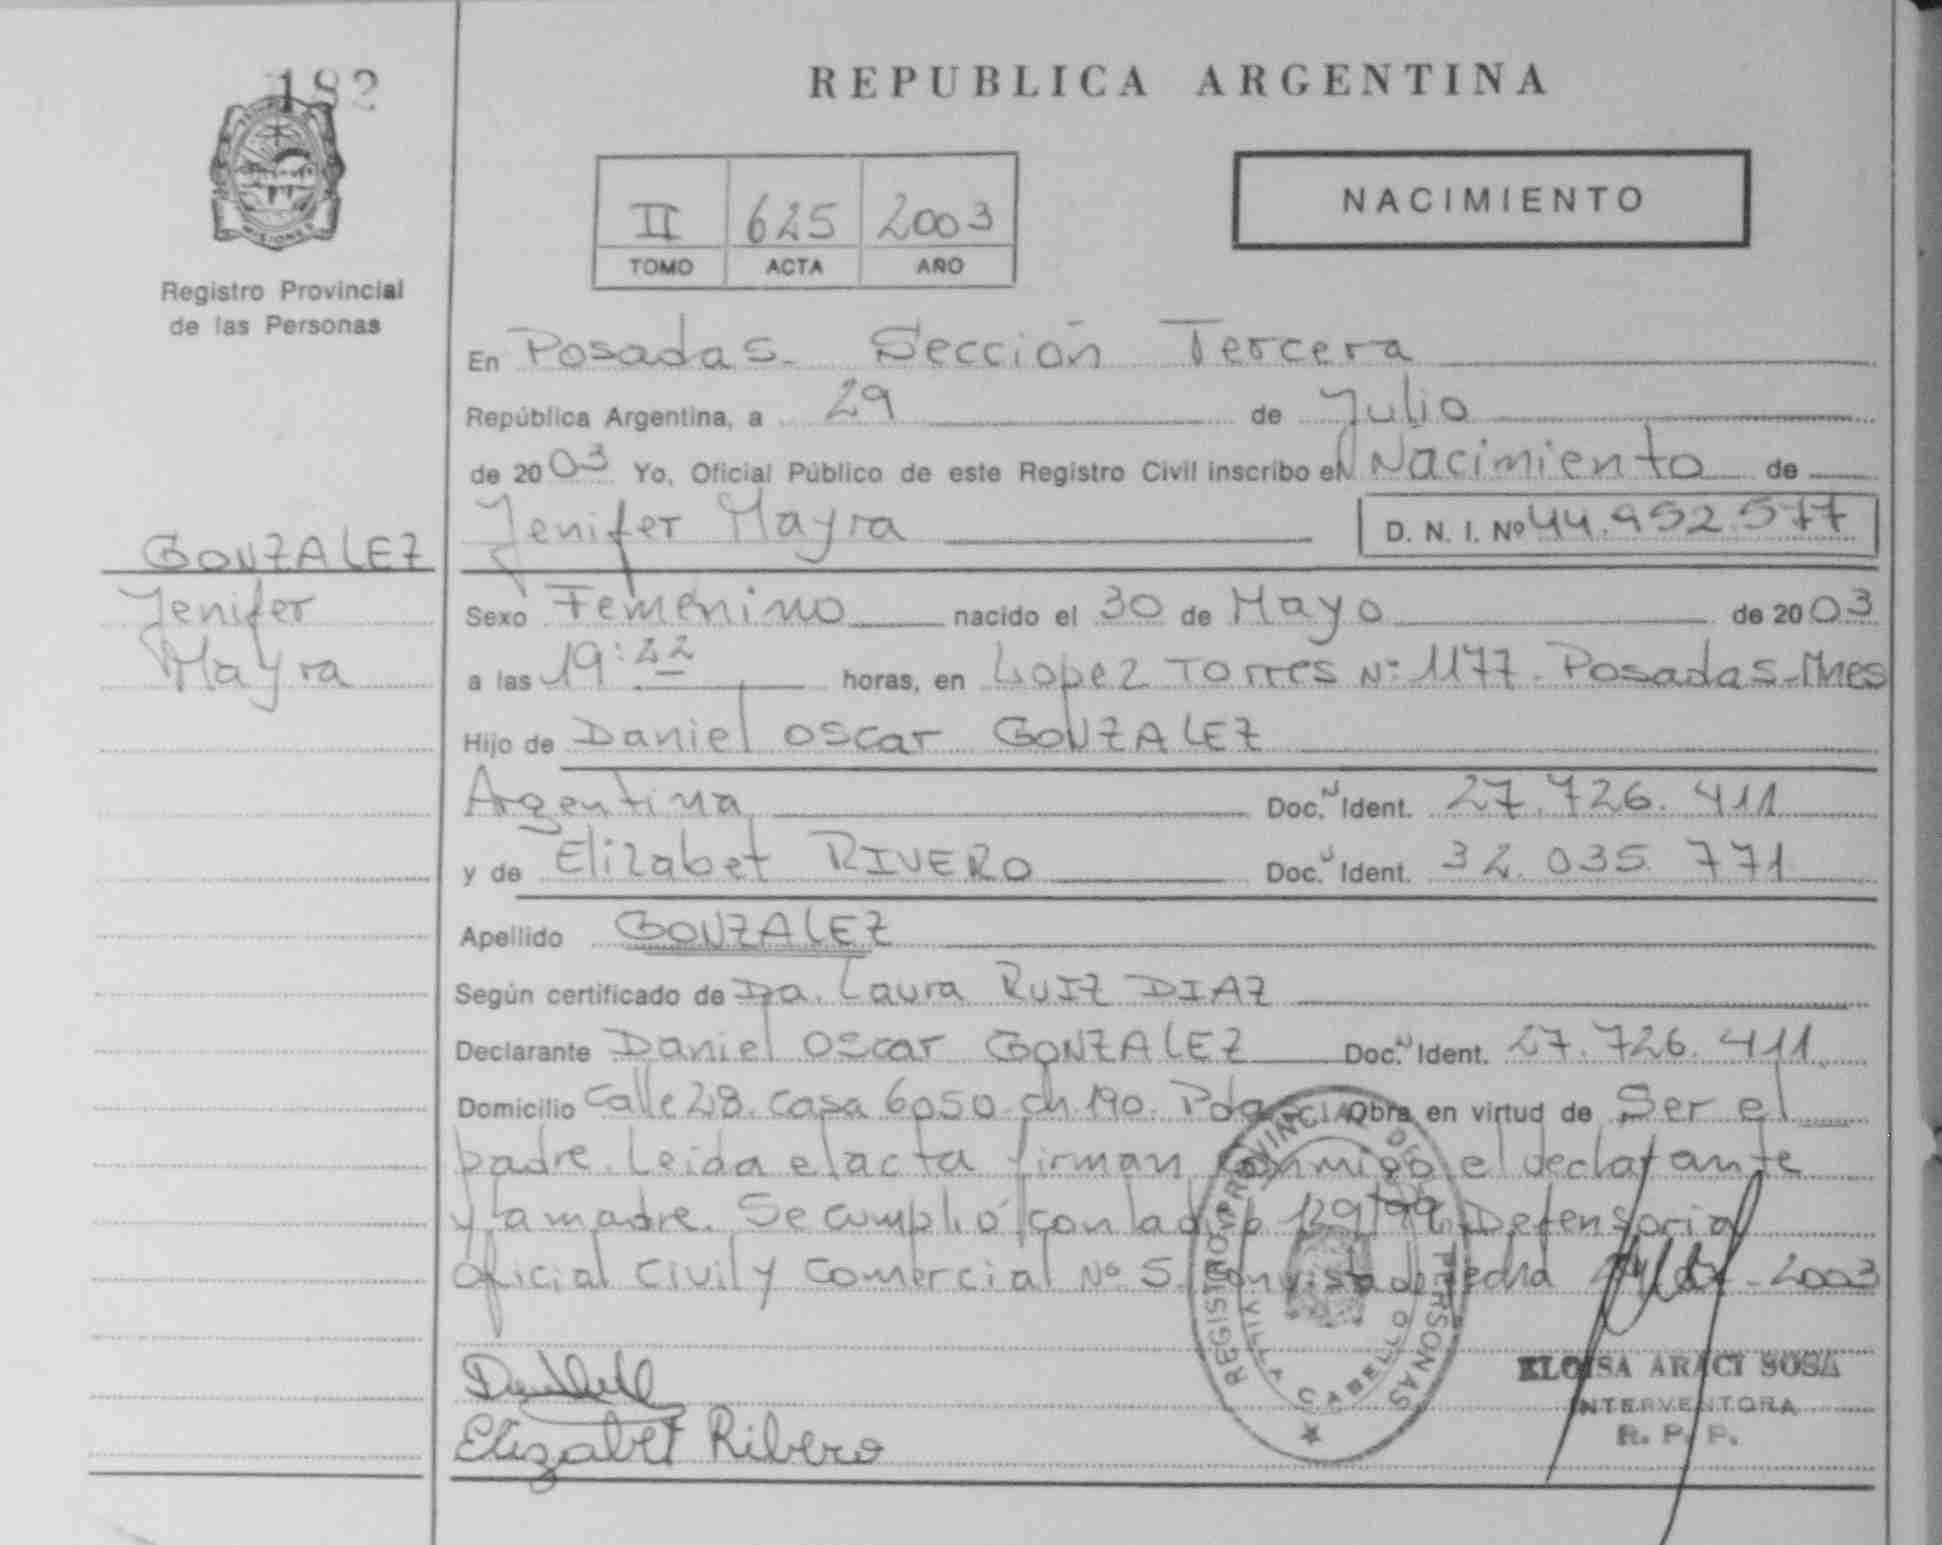 182
MISIONES
Registro Provincial
de las Personas
GONZALEZ
Jenifer
Mayra
REPUBLICA ARGENTINA
II 625 2003
TOMO ACTA AÑO
NACIMIENTO
En Posadas - Sección Tercera
República Argentina, a 29 de Julio
de 2003 Yo, Oficial Público de este Registro Civil inscribo el Nacimiento de
Jenifer Mayra D. N. I. Nº 44.952.577
Sexo Femenino nacido el 30 de Mayo de 2003
a las 19:22 horas, en Lopez Torres Nº 1177. Posadas-Mnes
Hijo de Daniel Oscar GONZALEZ
Argentina Doc. Ident. 27.726.411
y de Elizabet RIVERO Doc. Ident. 32.035.771
Apellido GONZALEZ
Según certificado de Da. Laura RUIZ DIAZ
Declarante Daniel Oscar GONZALEZ Doc. Ident. 27.726.411
Domicilio Calle 28. casa 6050. ch. 190. Pdas Obra en virtud de Ser el
padre. Leida el acta firman conmigo el declarante
y la madre. Se cumplió con la disp 129/99. Defensoria
Oficial Civil y Comercial Nº 5. con vista de fecha 2003
REGISTRO PROVINCIAL DE LAS PERSONAS
VILLA CABELLO
Elizabet Ribero
ELOISA ARACI SOSA
INTERVENTORA
R. P. P.